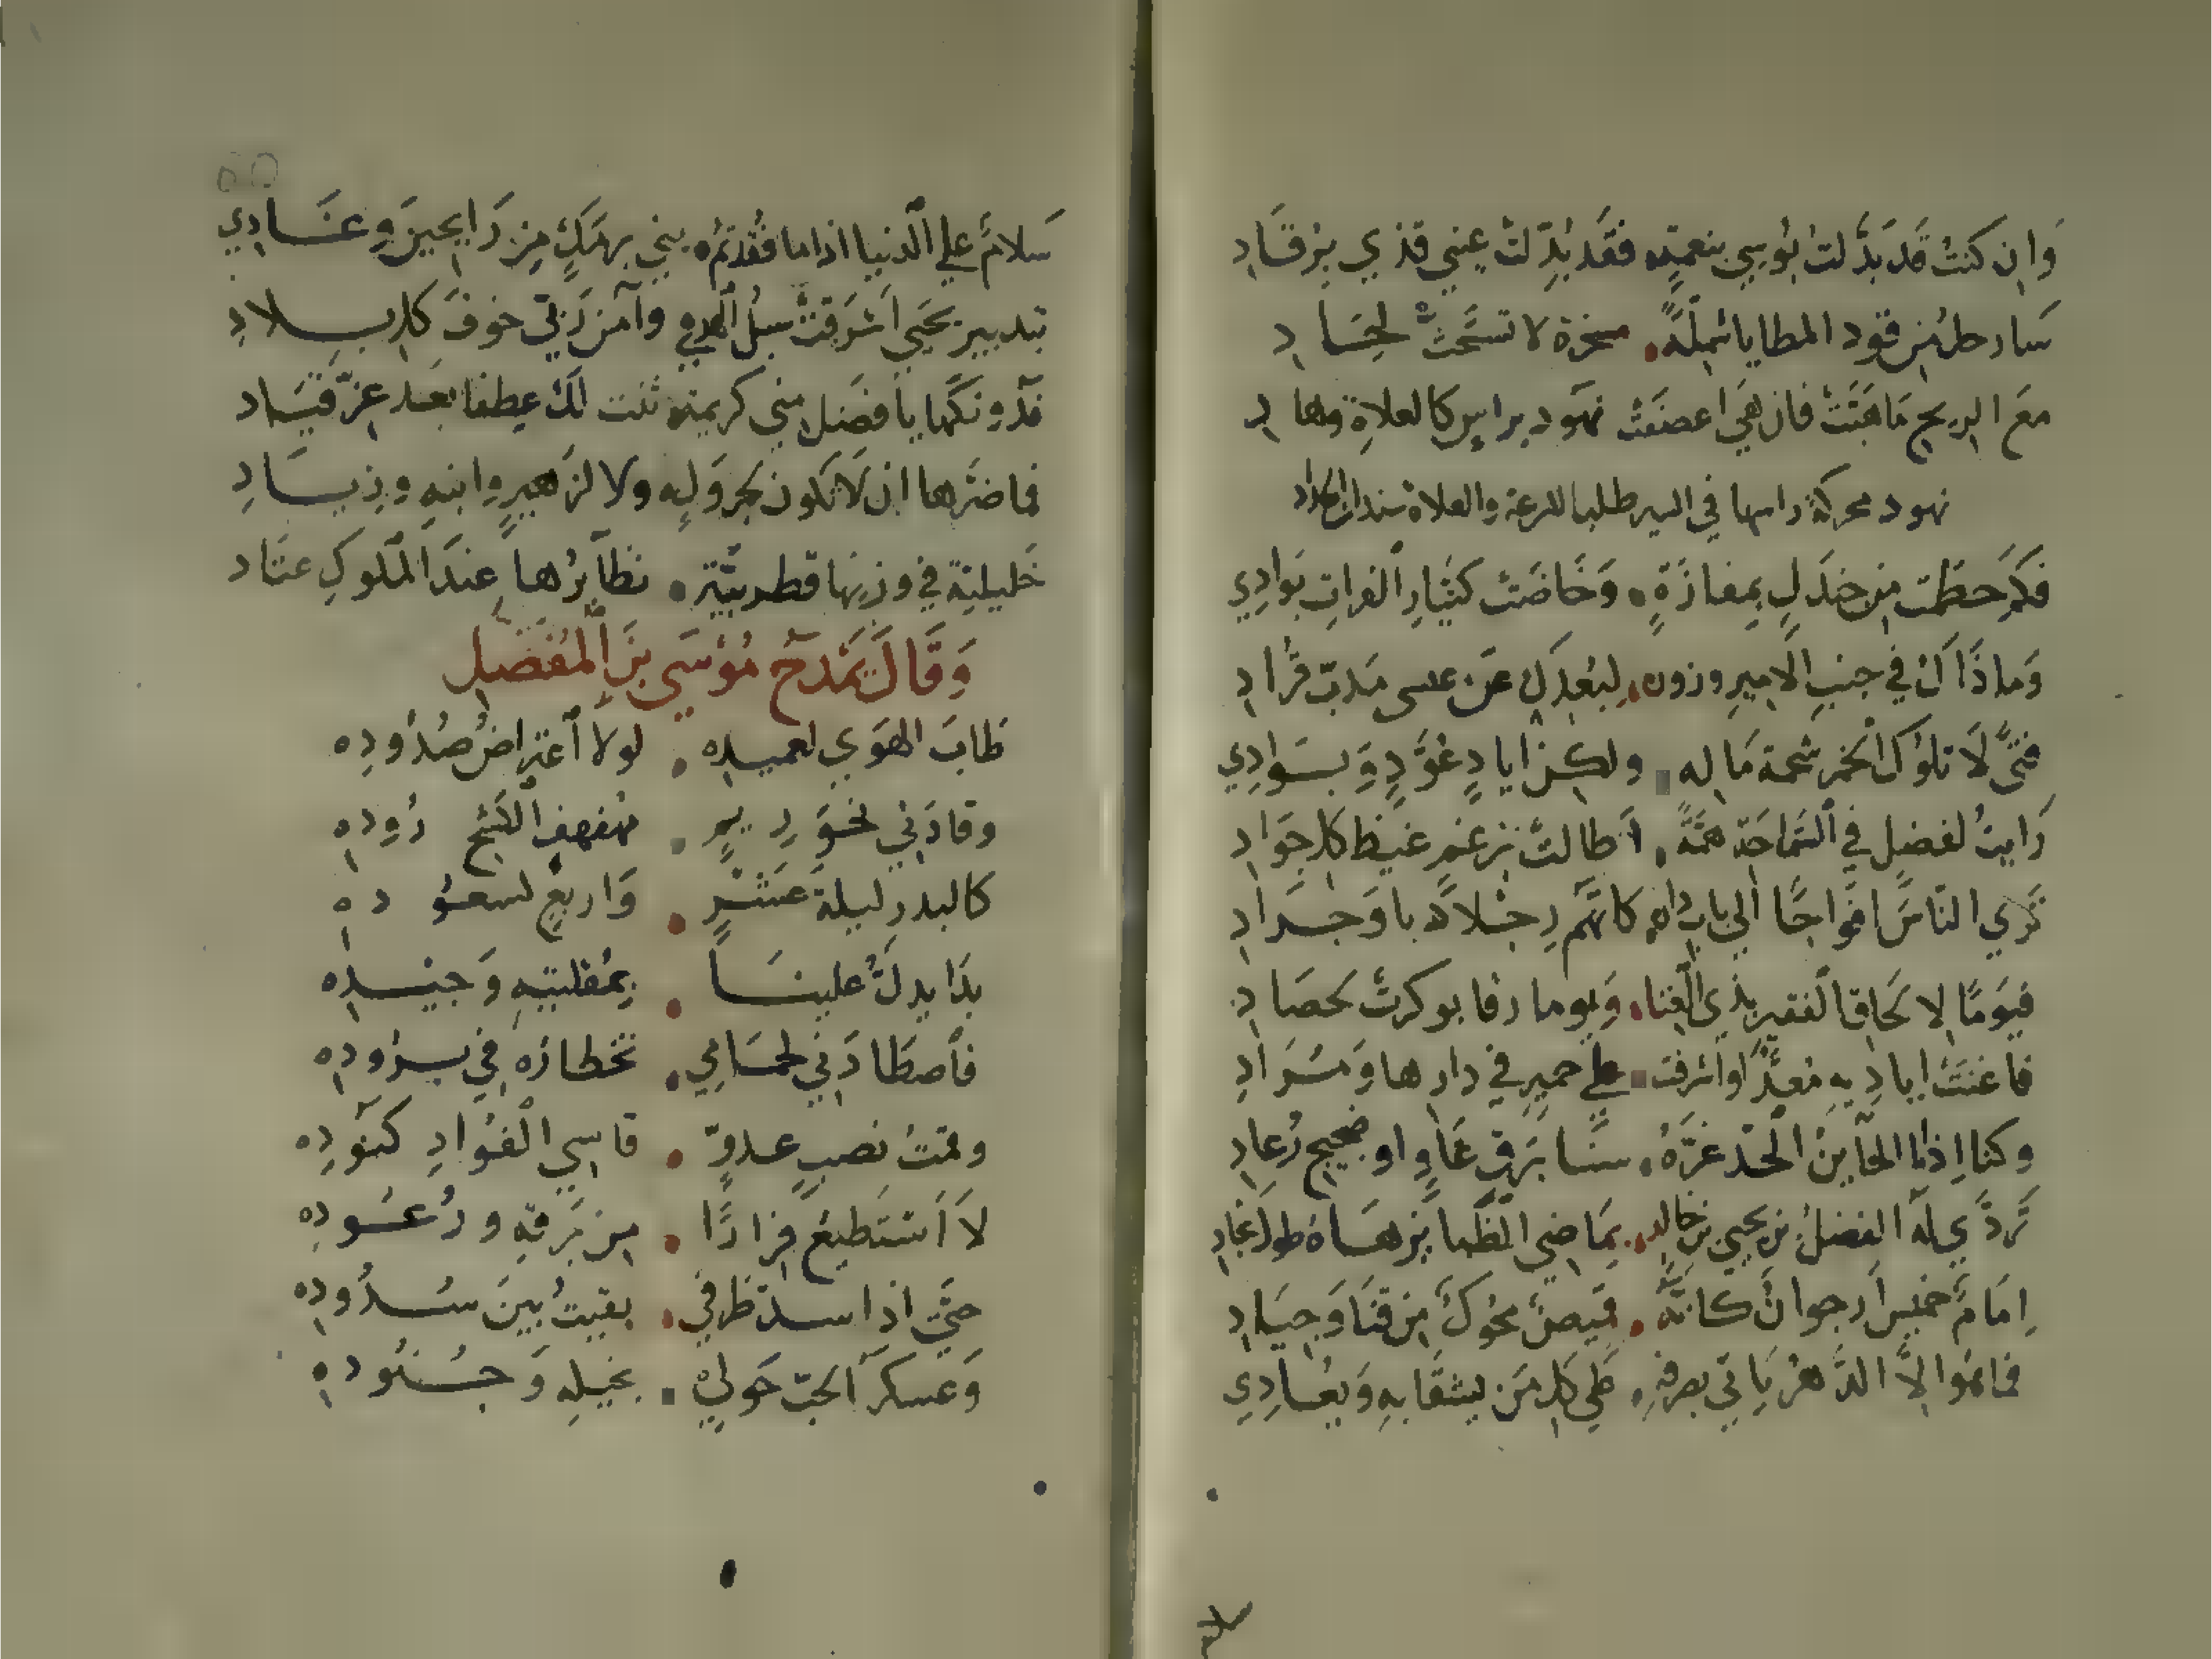 وَان كنتُ قَد بَدَّلتُ بُوسِي بنعمةٍ • فقَد بُدِّلتْ عيني قذي برُقَادِ
سَارحل من قود المطايا شِمِلَّةً • مسخرة لا تستحث لِحَادِ
معَ الريح مَا هَبَّتْ فان هيَ اعصفَتْ نَهود براسٍ كالعلاةِ وهادِ
نهود محركة راسها في السير طلبا للسرعة والعلاة سندان الحداد
فكم حطمت من جندلٍ بمفازةٍ • وَخاضَتْ كتيَّارِ الفراتِ بوادِي
وَما ذَاك في جنبِ الاميرِ وزوره • ليُعدلَ عن عنسي مَدبّ قُرادِ
فتًى لَا تلوك الخمر شحمة مَاله • ولكن ايادٍ عُوَّدٍ وَبَوَادِي
رَايتُ لفضلٍ في السَّماحَة همَّةً • اَطالتْ برغمٍ غيظ كل جوَادِ
تَرَي الناسَ افوَاجًا الي بابِ دارهِ كانَّهم رِجْلا دَبا وَجَرادِ
فيَومًا لالحاق الفقير بذي الغنا • وَيوما رقابٌ بوكرتْ بحصَادِ
فاغنَتْ اياديهِ مُعَدًّا واشرفت • علي حميرٍ في دارها وَمُرَادِ
وكنا اِذا ما الحَاين الجَدِّ غرَّهُ • سنا بَرقِ غَاوٍ او ضجيج رُعادِ
تَردَّي له الفضلُ بن يحيي بن خالدٍ • بمَاضي الظُّبا يَزهَاهُ طول نجادِ
اِمَامَ خميسٍ اُرجوانٍ كانَّهُ • قميصٌ محوكٌ من قنا وَجِيَادِ
فما هُوَ اِلاَّ الدَّهرُ يَاتي بصرفهِ • علي كلِ مَن يشقَا بهِ وَيُعَادِي
سَلامٌ علي الدنيا اذا ما فُقدتمُ • بني برمَكٍ مِن رَايحينَ وغَادِي
بتدبير يحَيي اَشرَقتْ سبلُ الهدي وآمنَ رَبّي خوفَ كل بلادِ
فدُونكَها يا فضلُ مني كريمةً ثنت لكَ عِطفا بعد عزّ قيَادِ
فما ضرَّها ان لَا تكون لجروَلٍ ولا لزهيرٍ وابنهِ وزِيادِ
خَليليّة في وزنها قطربيَّة • نظآئرُها عندَ الملوكِ عتَادِ
وَقَالَ يَمدَحُ مُوسَي بنَ المُفَضّل
طَابَ الهوَي لعميده • لولا اَعتراضُ صُدُودِه
وقادَني نحوَ ريمٍ • مُهفهفِ الكَشْحِ رُودِهِ
كالبدرِ ليلةَ عَشْرٍ • وَاربعٍ لسعُودِهِ
بدَا يدلُّ علينا • بمُقلتيهِ وَجيدِه
فاَصطادَني لحمَامِي • تخطارُه في برُودِه
وقمتُ نصبِ عدوٍّ • قاسِي الفُوَادِ كنَودِه
لاَ اَستَطيعُ فِرارًا • من بَرقهِ ورُعُودِهِ
حتَّي اذا سدَّ طرفي • بقيتُ بينَ سُدُودِه
وَعسكرَ الحُبّ حَولي • بخيلهِ وَجُنُودهِ